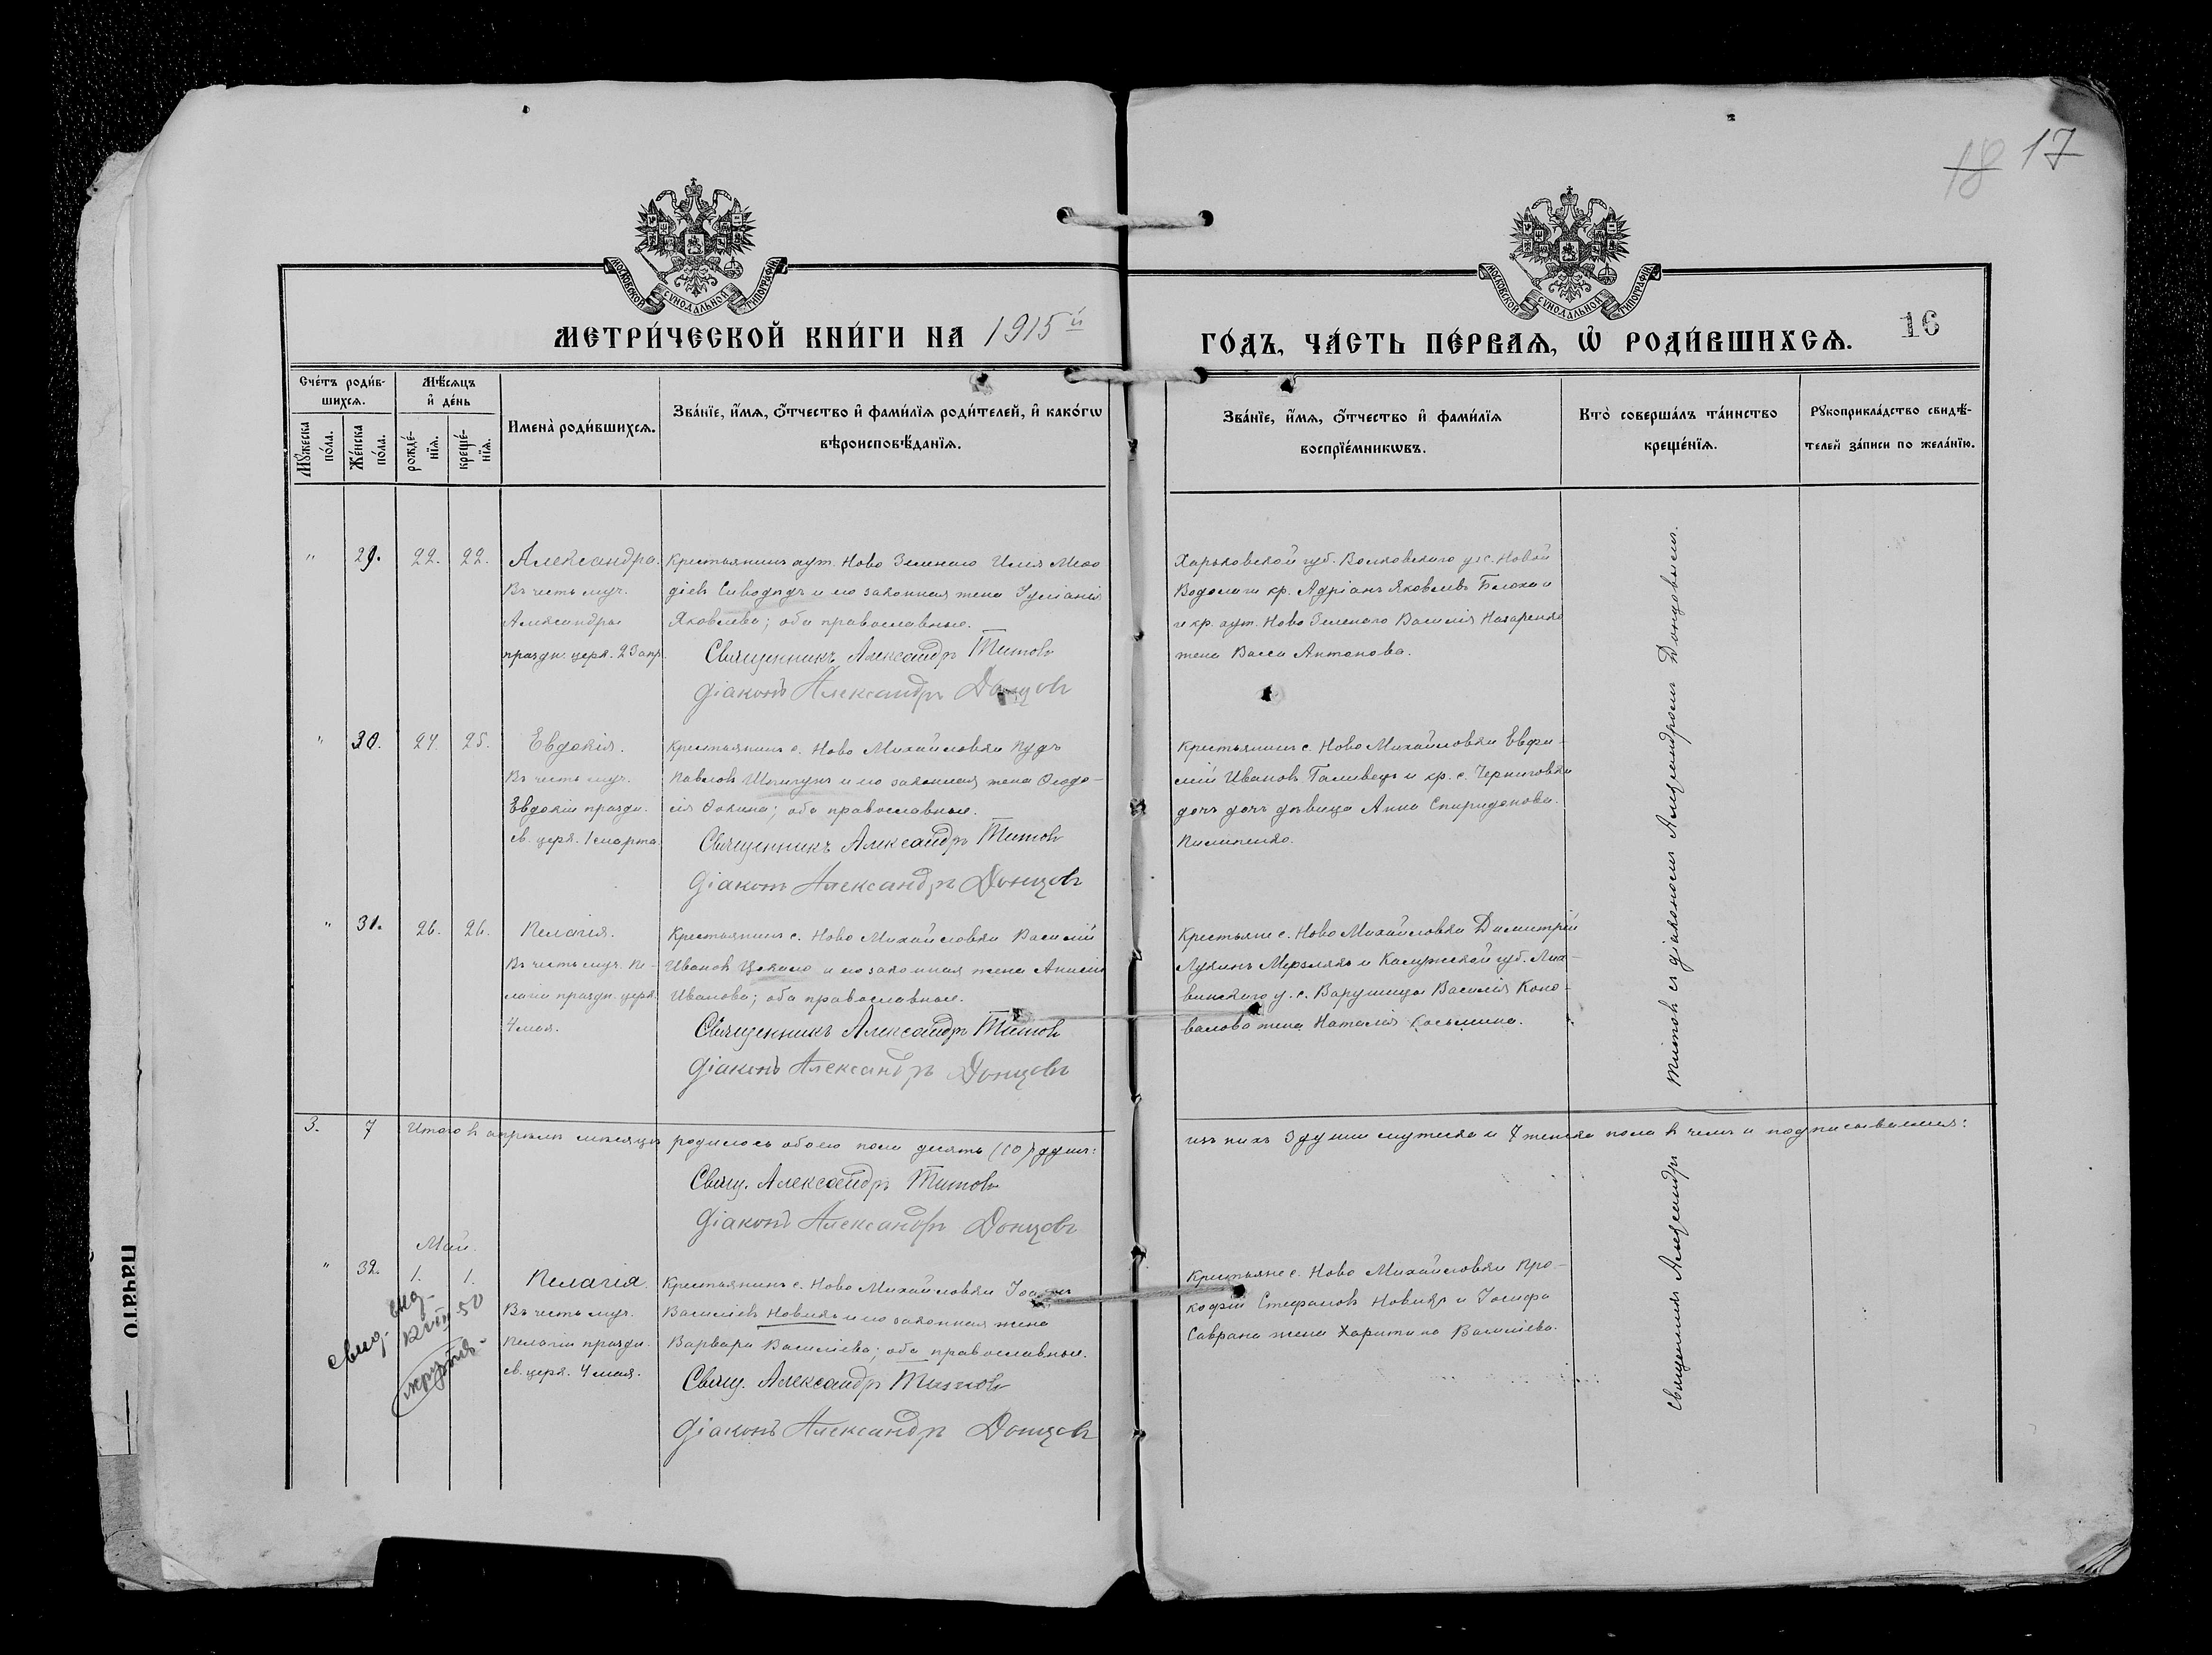 18 17
МОСКОВСКОЙ СѴНОДАЛЬНОЙ ТИПОГРАФІИ
МОСКОВСКОЙ СѴНОДАЛЬНОЙ ТИПОГРАФІИ
МЕТРИ́ЧЕСКОЙ КНИ́ГИ НА 1915 й
ГО́ДЪ, ЧА́СТЬ ПЕ́РВАѦ, Ѡ҆ РОДИ́ВШИХСѦ. 16
Сче́тъ роди́в-
шихсѧ.
Мѣ́сѧцъ
и҆ де́нь
Мꙋ́жеска
по́ла.
Же́нска
по́ла.
рожде́-
нїѧ.
креще́-
нїѧ.
Имена̀ роди́вшихсѧ.
Зва́нїе, и҆́мѧ, ѻ҆́тчество и҆ фами́лїѧ роди́телей, и҆ како́гѡ
вѣроисповѣ́данїѧ.
Зва́нїе, и҆́мѧ, ѻ҆́тчество и҆ фами́лїѧ
воспрїе́мникѡвъ.
Кто̀ соверша́лъ та́инство
креще́нїѧ.
Рꙋкоприкла́дство свидѣ́-
телей за́писи по жела́нїю.
" 29. 22. 22. Александра.
Въ честь муч.
Александры
праздн. церк. 23 апр.
Крестьянинъ хут. Ново Зеленаго Илія Меѳо
діевъ Сиводѣдъ и его законная жена Іуліанія
Яковлева; оба православные.
Священникъ Александръ Титовъ
Діаконъ Александръ Донцовъ
Харьковской губ. Волковскаго у. с. Новой
Водолаги кр. Адріанъ Яковлевъ Блоха и
и кр. хут. Ново Зеленаго Василія Назаренко
жена Васса Антонова.
" 30. 24. 25. Евдокія.
Въ честь муч.
Евдокіи праздн.
св. церк. 1 марта.
Крестьянинъ с. Ново Михайловки Иудъ
Павловъ Шпигунъ и его законная жена Ѳеодо-
сія Ѳокина; оба православные.
Священникъ Александръ Титовъ
Діаконъ Александръ Донцовъ
Крестьянинъ с. Ново Михайловки Евфи-
мій Ивановъ Галивецъ и кр. с. Черниговки
дочь дочь дѣвица Анна Спиридонова
Пилипенко.
" 31. 26. 26. Пелагія.
Въ честь муч. Пе-
лагіи праздн. церк.
4 мая.
Крестьянинъ с. Ново Михайловки Василій
Ивановъ Цокало и его законная жена Анисія
Иванова; оба православные.
Священникъ Александръ Титовъ
Діаконъ Александръ Донцовъ
Крестьяне с. Ново Михайловки Димитрій
Лукинъ Мерзлякъ и Калужской губ. Лих-
винскаго у. с. Варушицы Василія Коно-
валова жена Наталія Косьмина.
3. 7 Итого въ апрѣлѣ мѣсяцѣ родилось обоего пола десять (10) душъ:
изъ нихъ 3 души мужеска и 7 женска пола въ чемъ и подписываемся:
Свящ. Александръ Титовъ
Діаконъ Александръ Донцовъ
Май.
" 32. 1. 1. Пелагія.
Въ честь муч.
Пелагіи праздн.
св. церк. 4 мая.
Крестьянинъ с. Ново Михайловки Іоаннъ
Василіевъ Новикъ и его законная жена
Варвара Василіева; оба православные.
Свящ. Александръ Титовъ
Діаконъ Александръ Донцовъ
Крестьяне с. Ново Михайловки Про-
кофій Стефановъ Новикъ и Іосифа
Саврана жена Харитина Василіева.
Священникъ Александръ Титовъ съ діакономъ Александромъ Донцовымъ.
начато